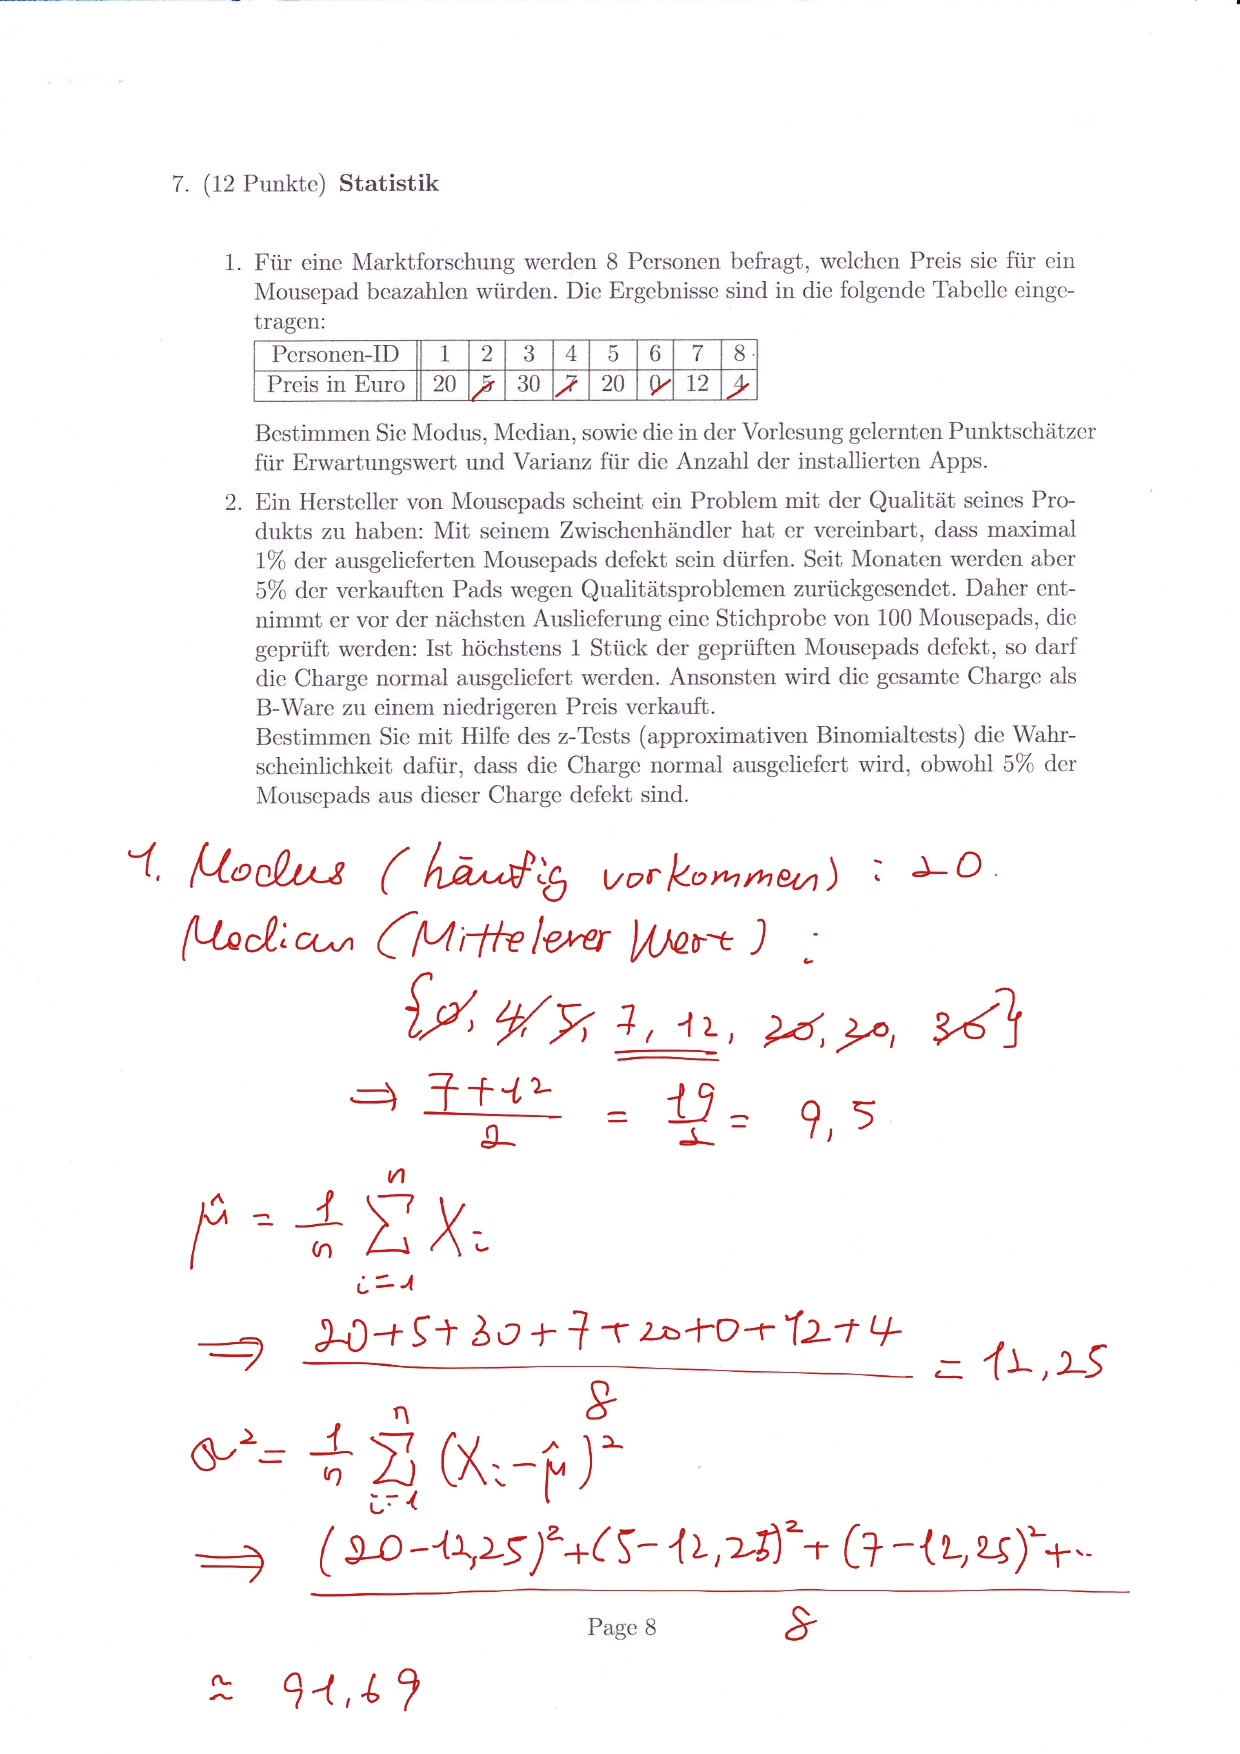 7. (12 Punkte) Statistik
1. Für eine Marktforschung werden 8 Personen befragt, welchen Preis sie für ein
Mousepad beazahlen würden. Die Ergebnisse sind in die folgende Tabelle einge-
tragen:
Personen-ID 1 2 3 4 5 6 7 8
Preis in Euro 20 5 30 7 20 0 12 4
Bestimmen Sie Modus, Median, sowie die in der Vorlesung gelernten Punktschätzer
für Erwartungswert und Varianz für die Anzahl der installierten Apps.
2. Ein Hersteller von Mousepads scheint ein Problem mit der Qualität seines Pro-
dukts zu haben: Mit seinem Zwischenhändler hat er vereinbart, dass maximal
1% der ausgelieferten Mousepads defekt sein dürfen. Seit Monaten werden aber
5% der verkauften Pads wegen Qualitätsproblemen zurückgesendet. Daher ent-
nimmt er vor der nächsten Auslieferung eine Stichprobe von 100 Mousepads, die
geprüft werden: Ist höchstens 1 Stück der geprüften Mousepads defekt, so darf
die Charge normal ausgeliefert werden. Ansonsten wird die gesamte Charge als
B-Ware zu einem niedrigeren Preis verkauft.
Bestimmen Sie mit Hilfe des z-Tests (approximativen Binomialtests) die Wahr-
scheinlichkeit dafür, dass die Charge normal ausgeliefert wird, obwohl 5% der
Mousepads aus dieser Charge defekt sind.
1. Modus (häufig vorkommen) : 20.
Median (Mittelerer Wert) :
{0, 4, 5, 7, 12, 20, 20, 30}
⇒ 7+12 / 2 = 19 / 2 = 9,5
μ̂ = 1/n n ∑ i=1 Xi
⇒ 20+5+30+7+20+0+12+4 / 8 = 12,25
σ² = 1/n n ∑ i=1 (Xi-μ̂)²
⇒ (20-12,25)²+(5-12,25)²+(7-12,25)²+.. / 8
Page 8
≈ 91,69